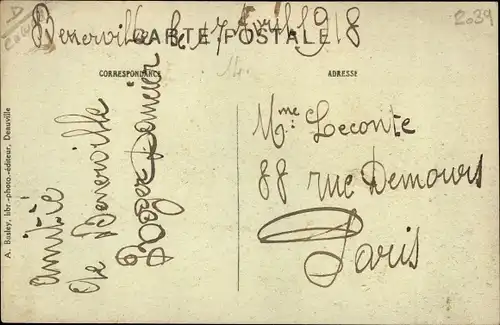 Benerville le 17 Avril 1918
CARTE POSTALE
2039
14
CORRESPONDANCE
ADRESSE
Amitié
de Benerville
Roger
A. Busley, libr.-photo.-éditeur, Deauville
Mme Leconte
88 rue Demours
Paris